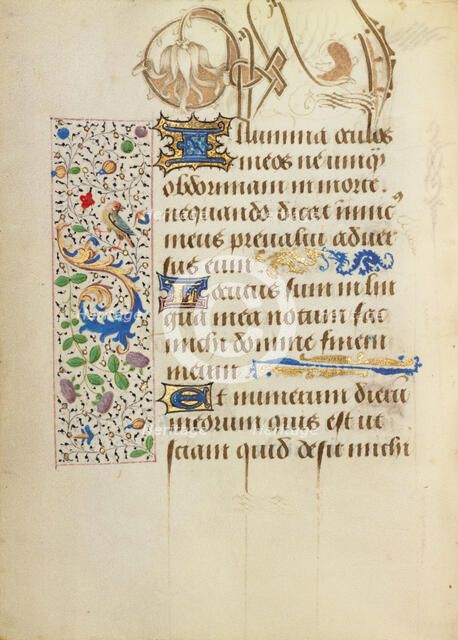 Illumina oculos
meos ne umq̄
obdormiam in morte.
nequando dicat inimic⁹
meus prevalui adver
sus eum
Locutus sum in lin
gua mea notum fac
michi domine finem
meum
Et numerum dierū
meorum quis est ut
sciam quid desit michi